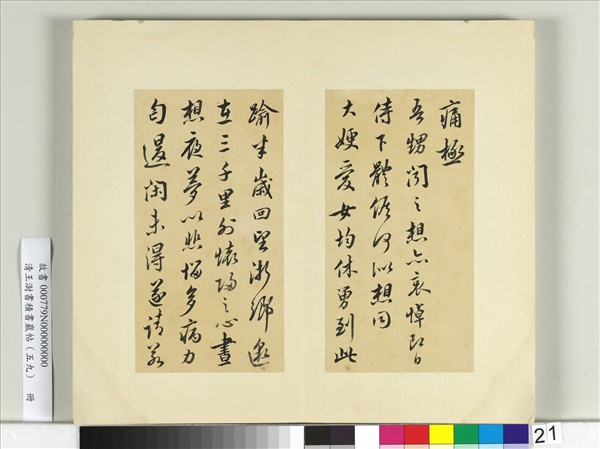 痛極
吾甥聞之想亦哀悼即日
侍下體候何似想同
大娉愛女均休勇到此
踰半歲回望浙鄉邈
在三千里外懷歸之心晝
想夜夢以悲惱多病力
匄退閑未得遂請若
故書 000779N000000000
清王澍書積書巖帖(五九) 冊
21